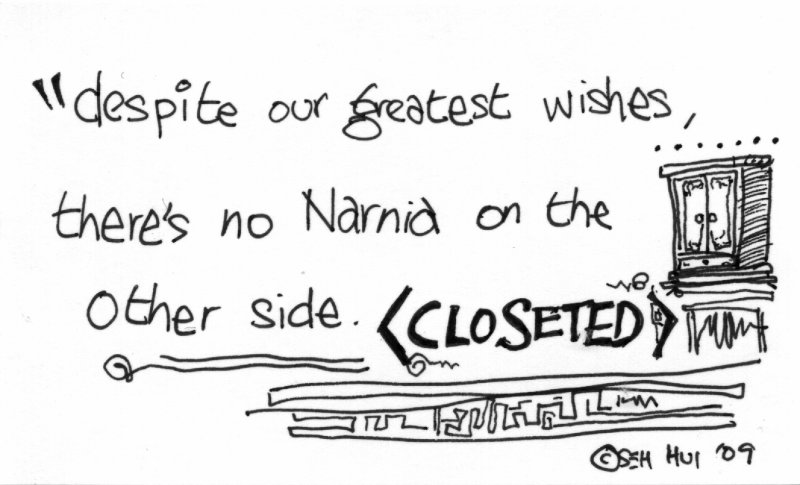 "despite our greatest wishes,
there's no Narnia on the
other side. <CLOSETED>
©SEH HUI '09